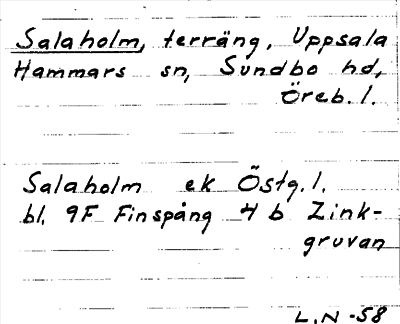 Salaholm, terräng, Uppsala
Hammars sn, Sundbo hd,
Öreb. l.
Salaholm ek Östg. l.
bl. 9F Finspång 4 b Zink-
gruvan
L.N -58